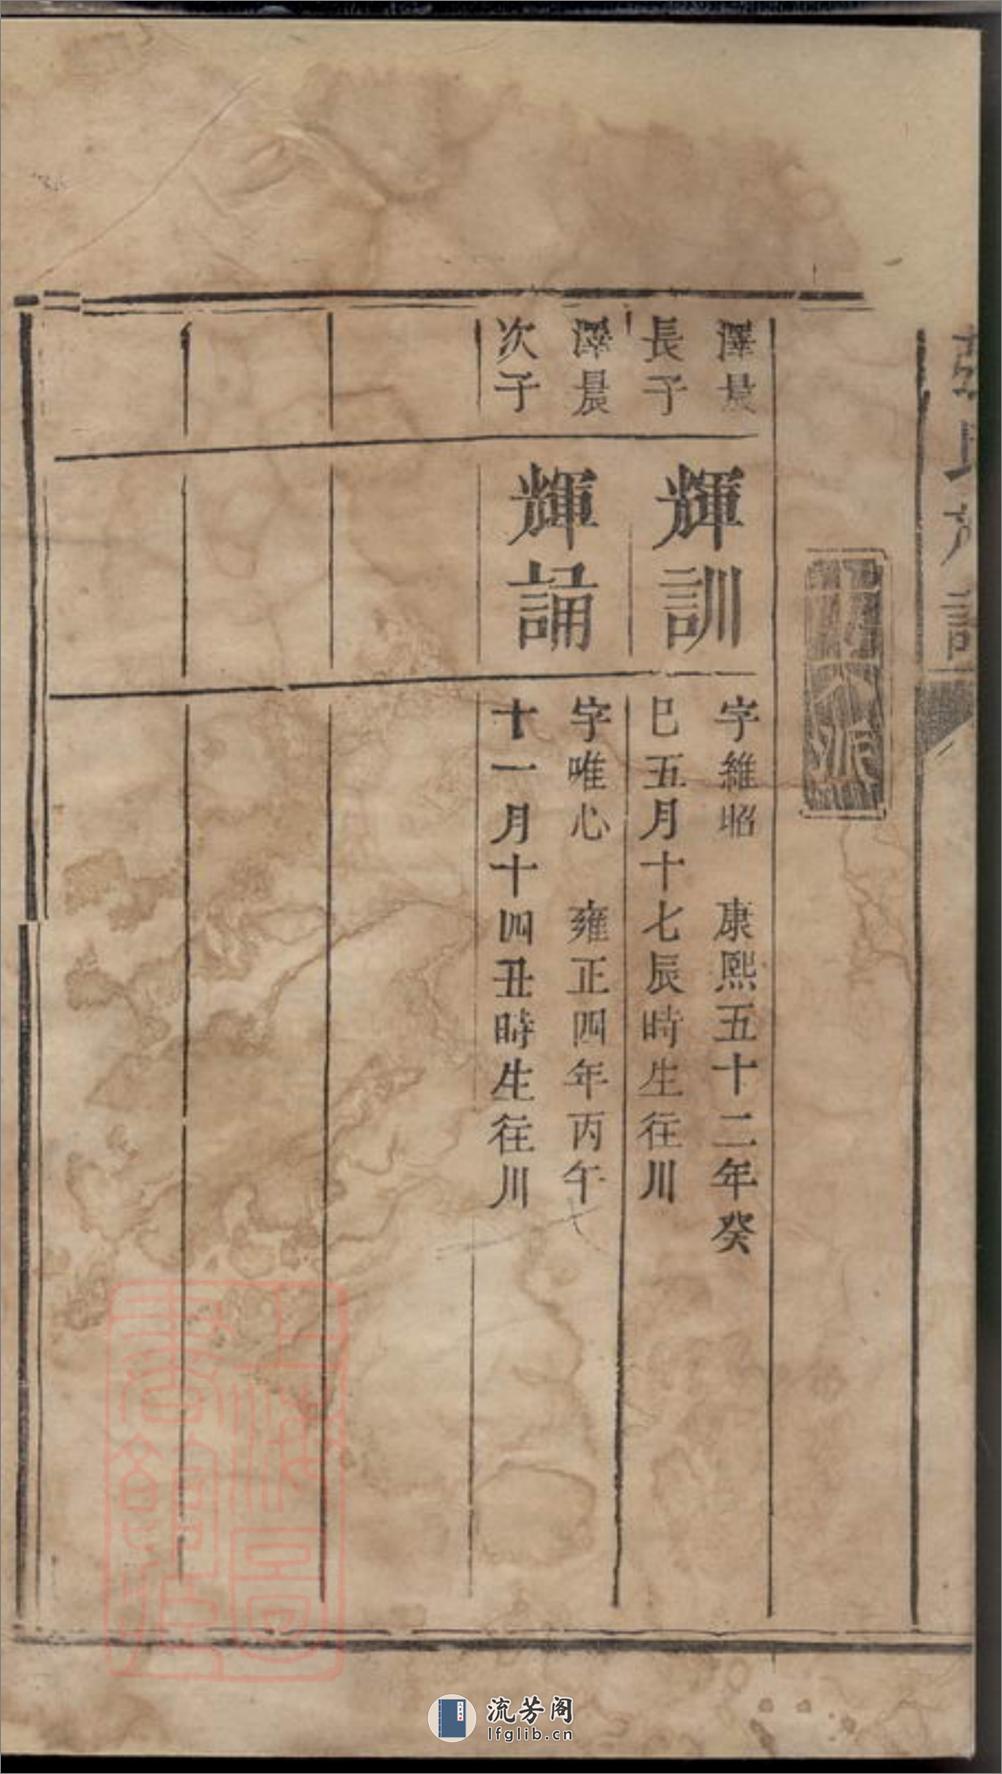 澤晨
長子
輝訓
字維昭 康熙五十二年癸
巳五月十七辰時生往川
澤晨
次子
輝誦
字唯心 雍正四年丙午
十一月十四丑時生往川
流芳阁
lfglib.cn